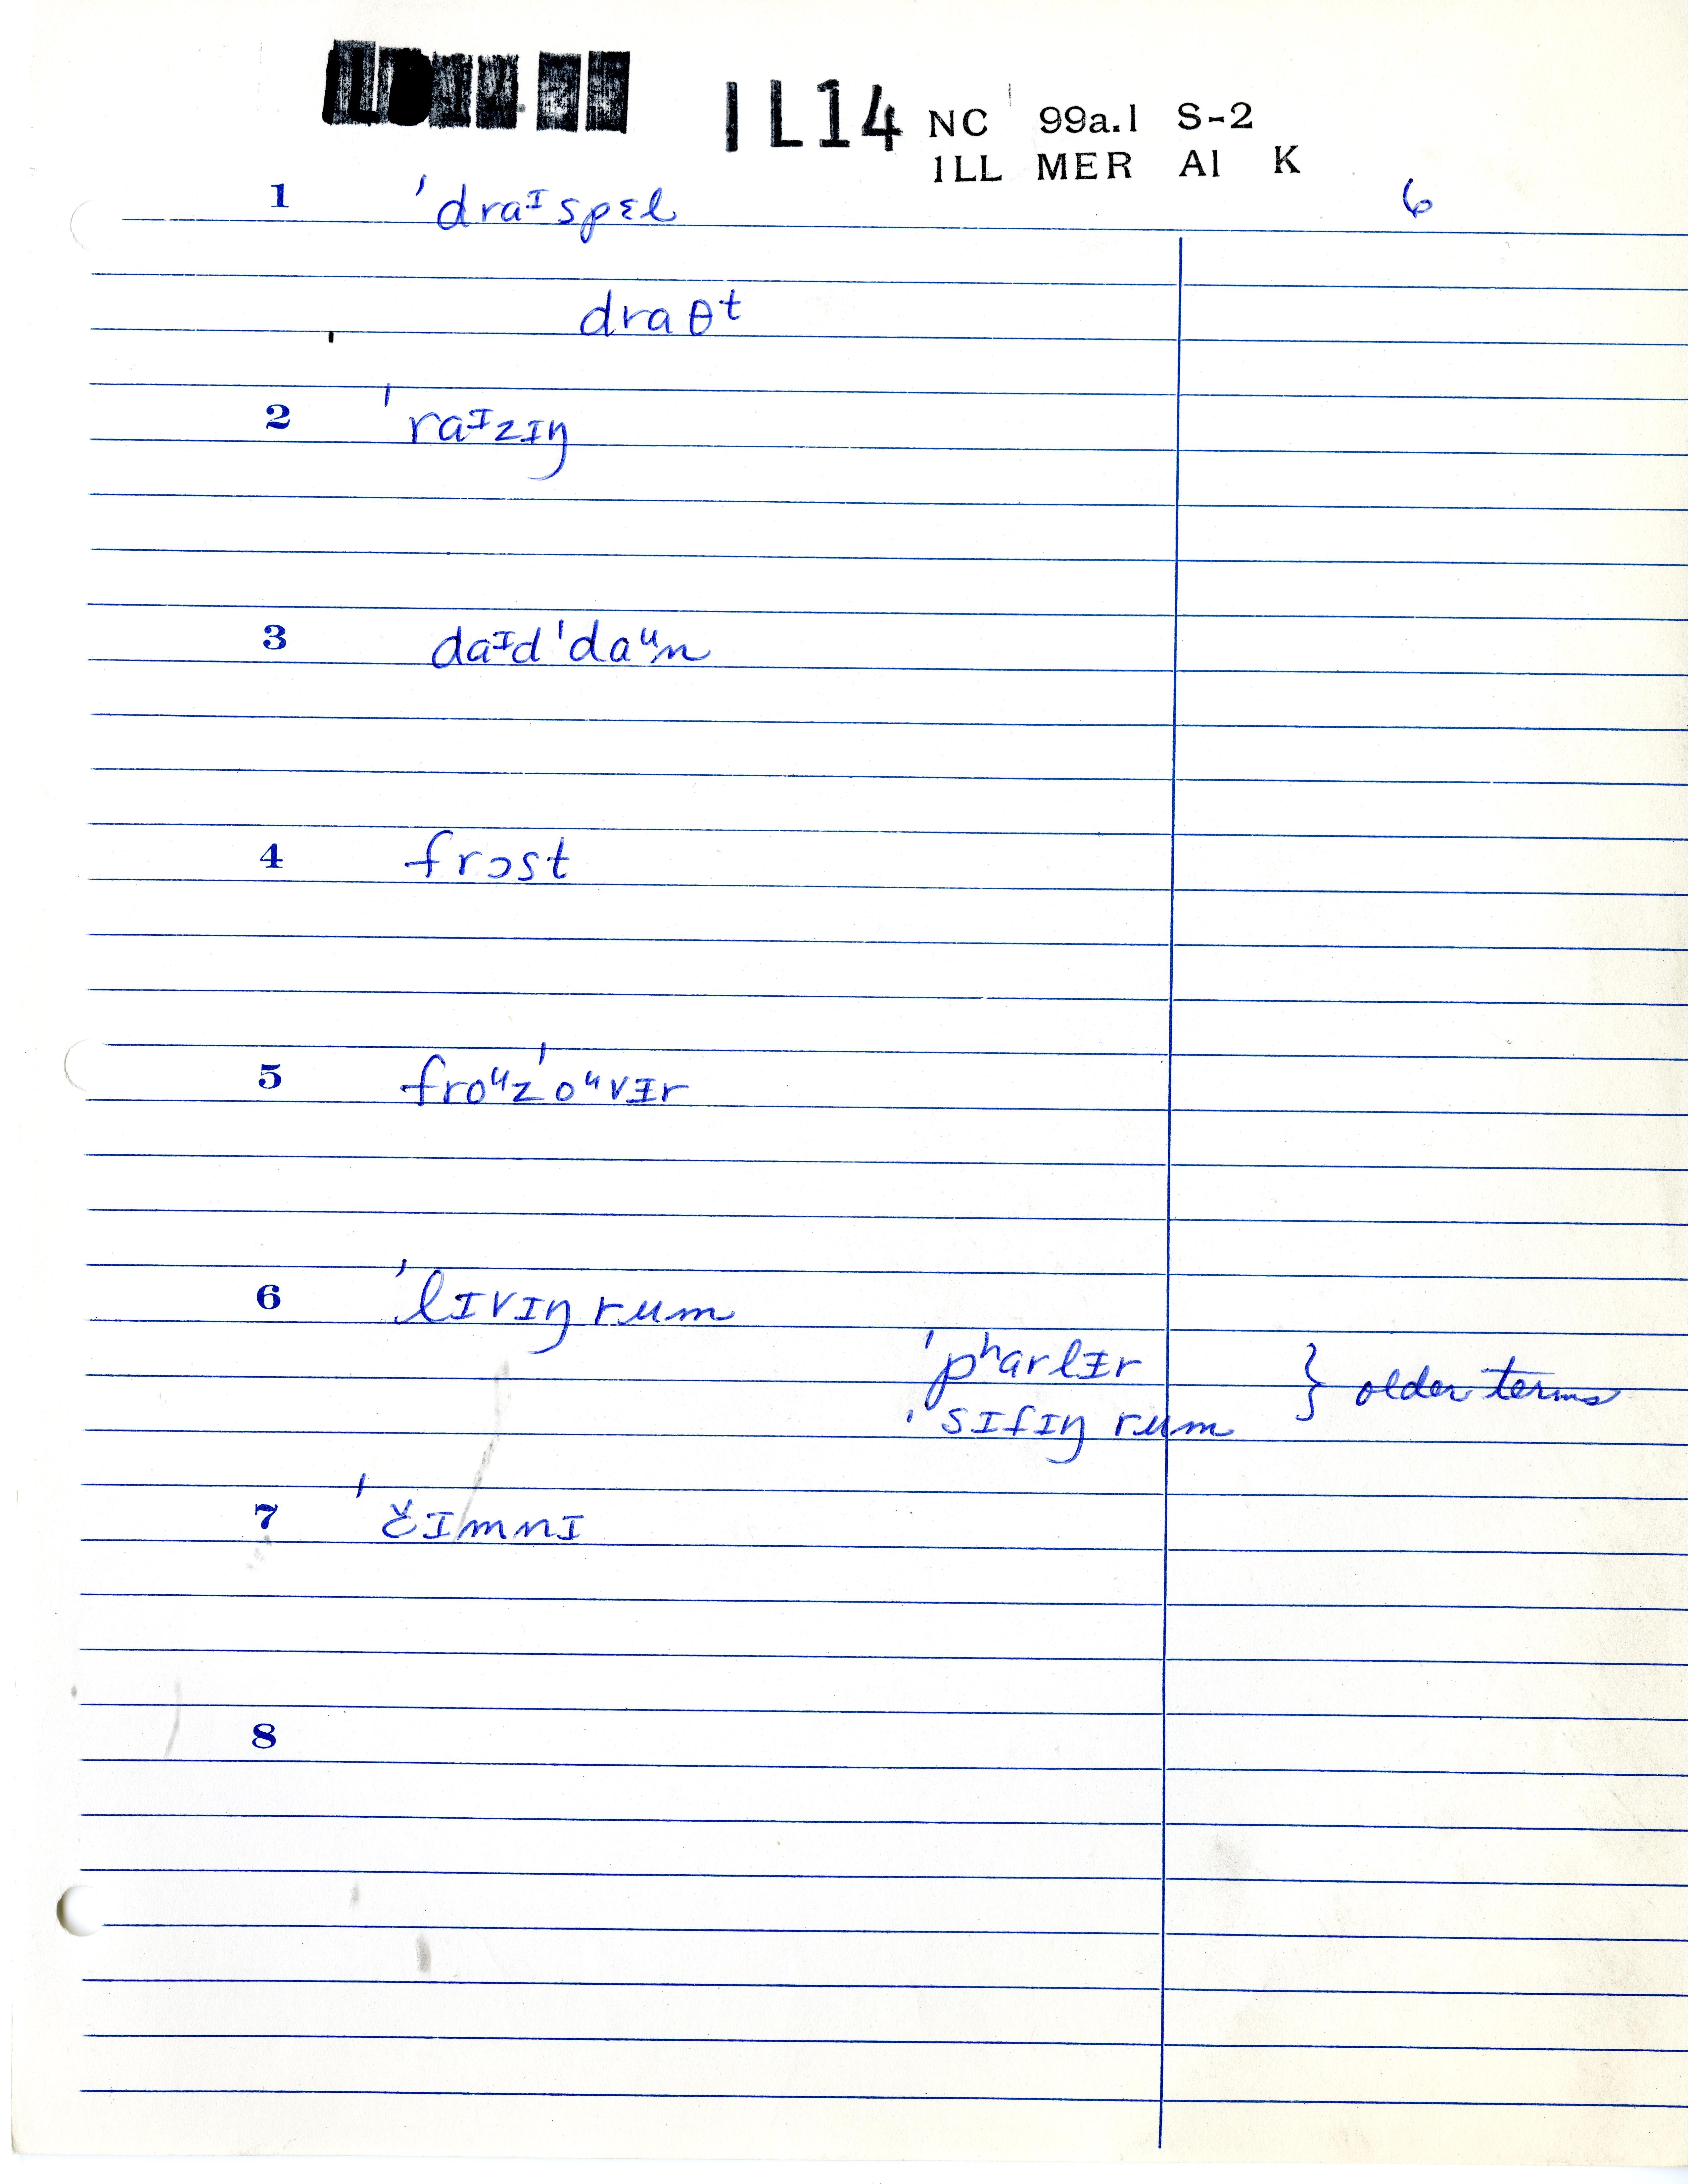 IL14 NC 99a.1 S-2
ILL MER A1 K
6
1 ˈdraᶦspɛl
draθᵗ
2 ˈraᶦzɪŋ
3 daᶦdˈdaᵘn
4 frɔst
5 froᵘzˈoᵘvɪr
6 ˈlɪvɪŋrum
ˈpʰarlɪr } older terms
ˈsɪfɪŋ rum
7 ˈčɪmnɪ
8